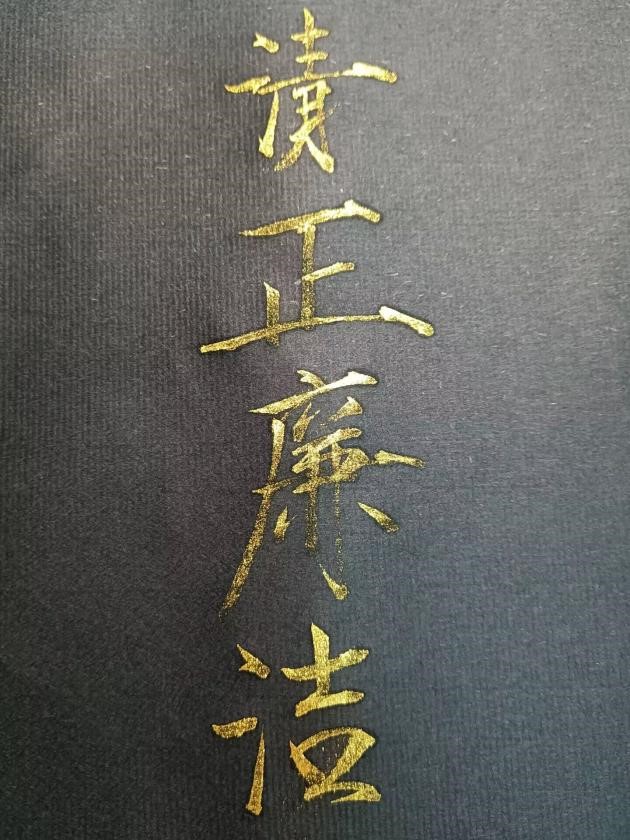 清正廉洁